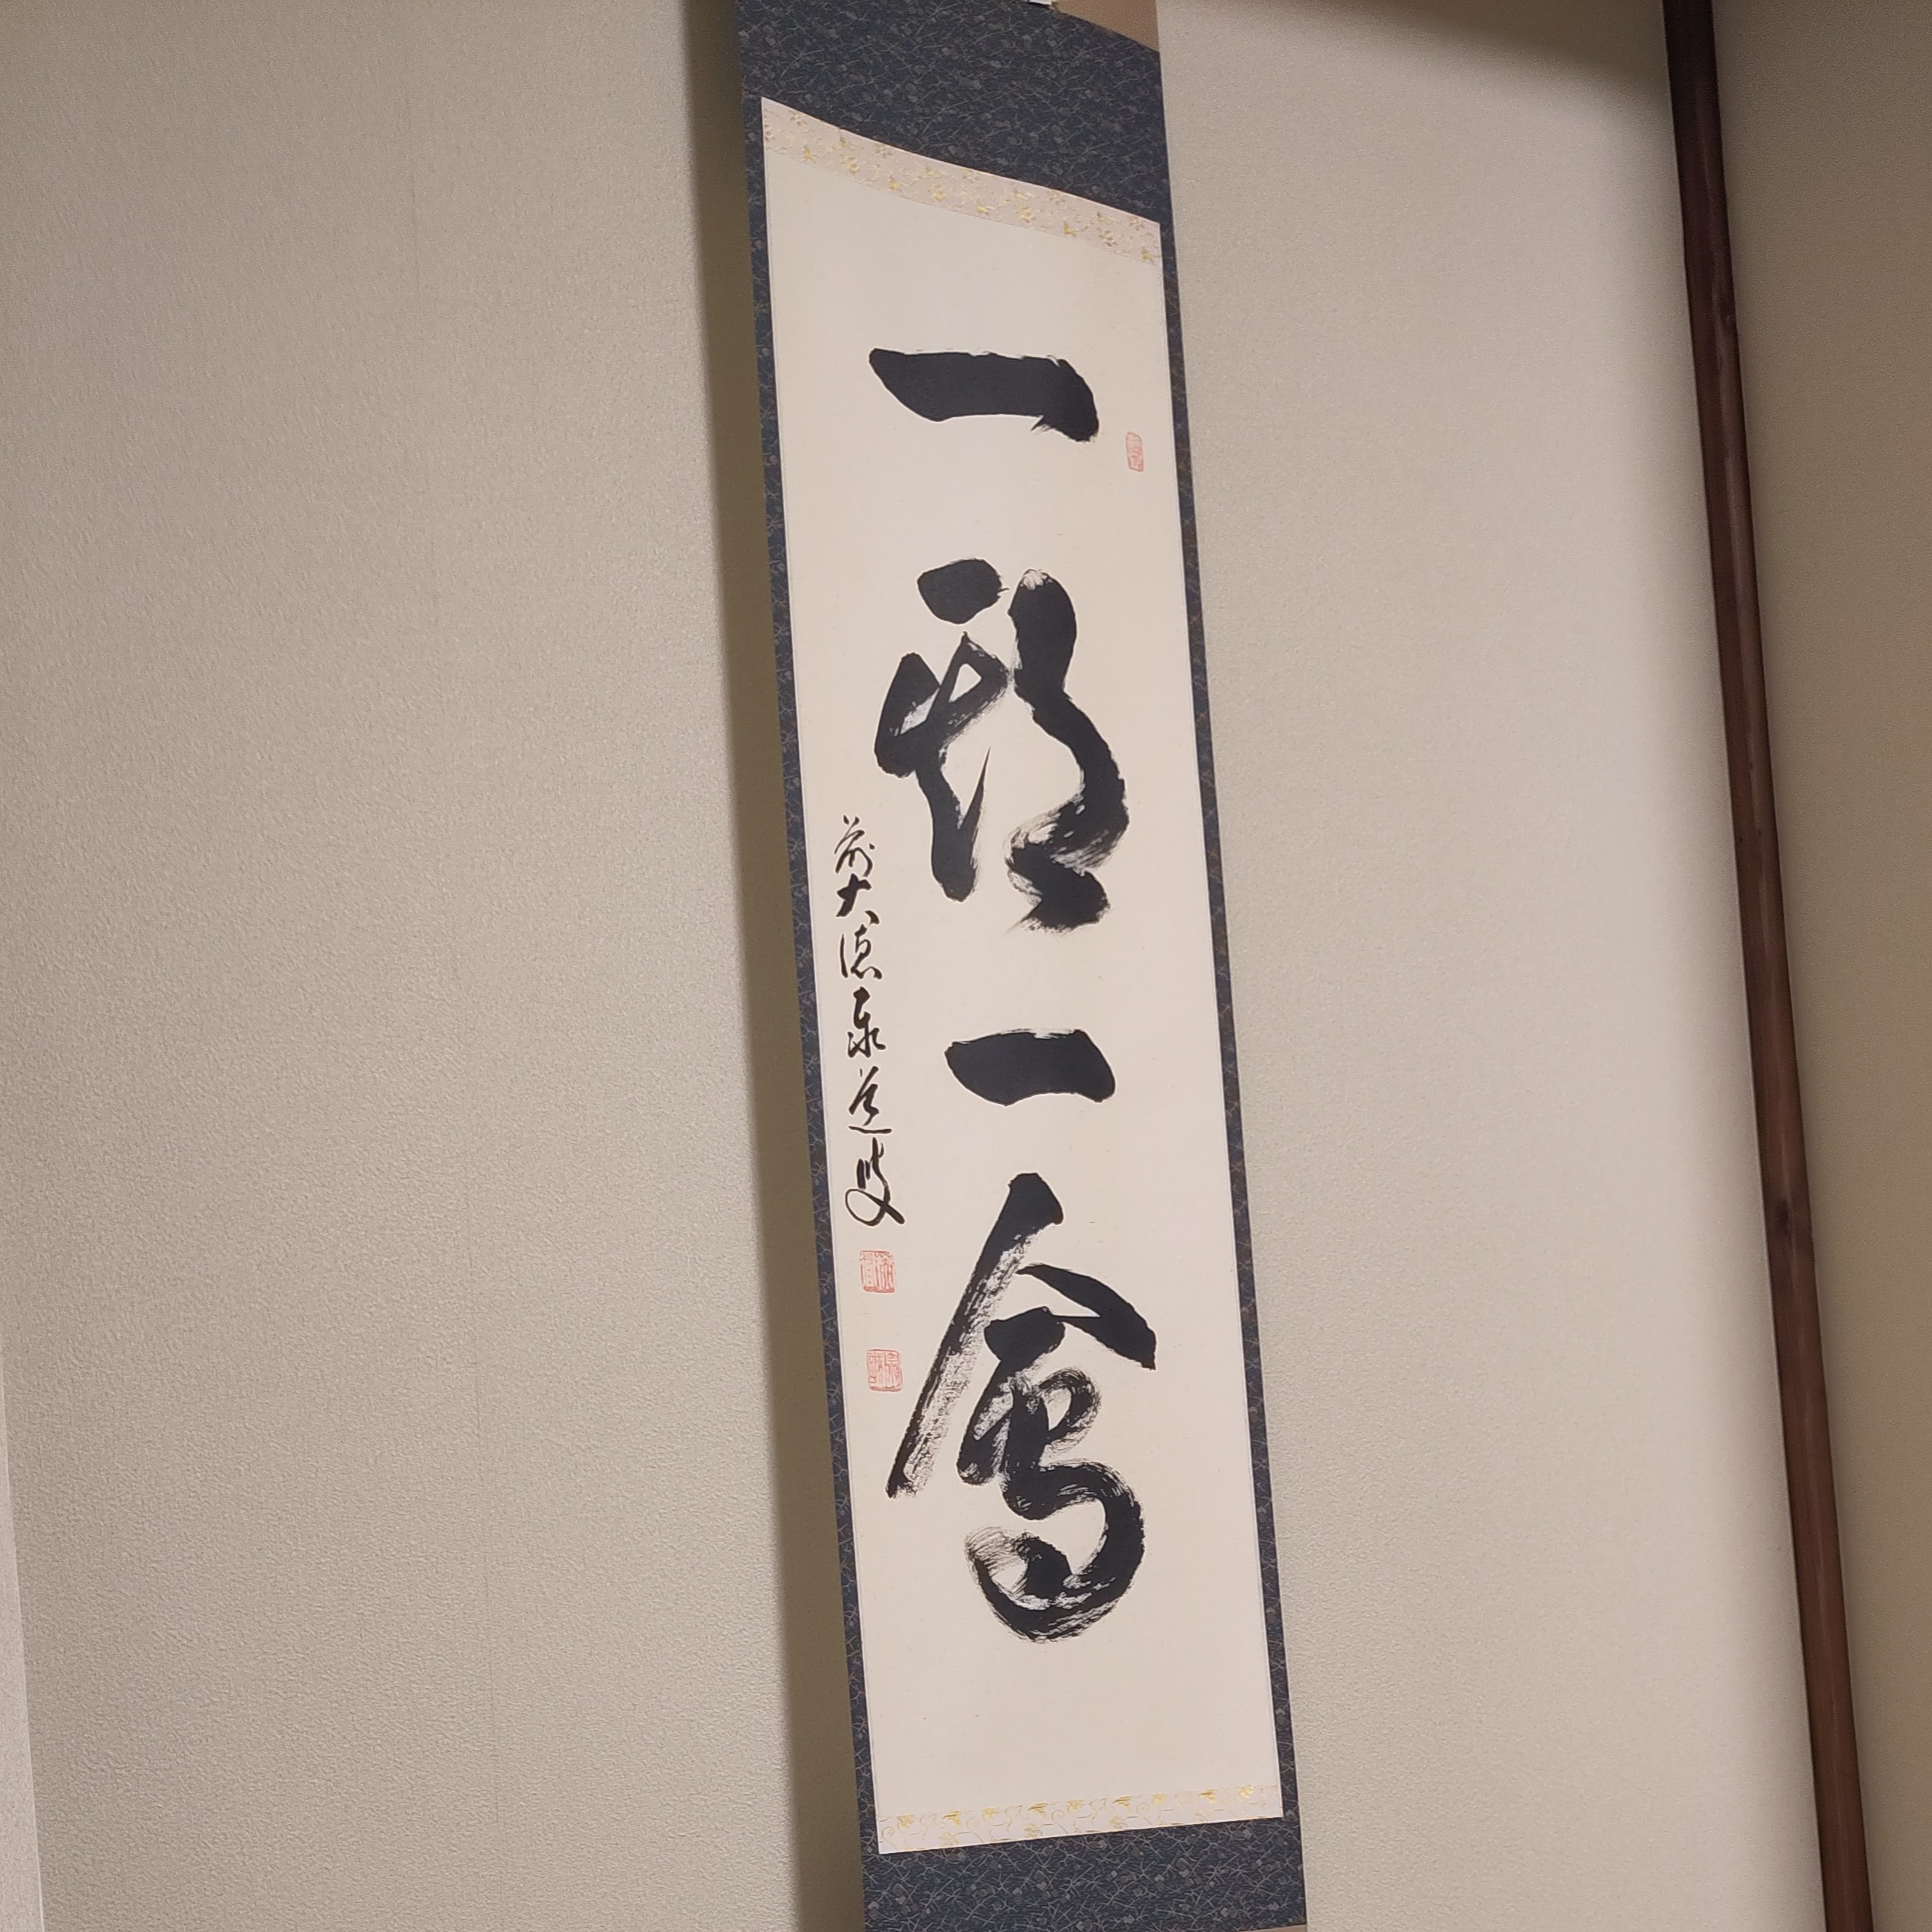 一期一會
前大徳泰道叟